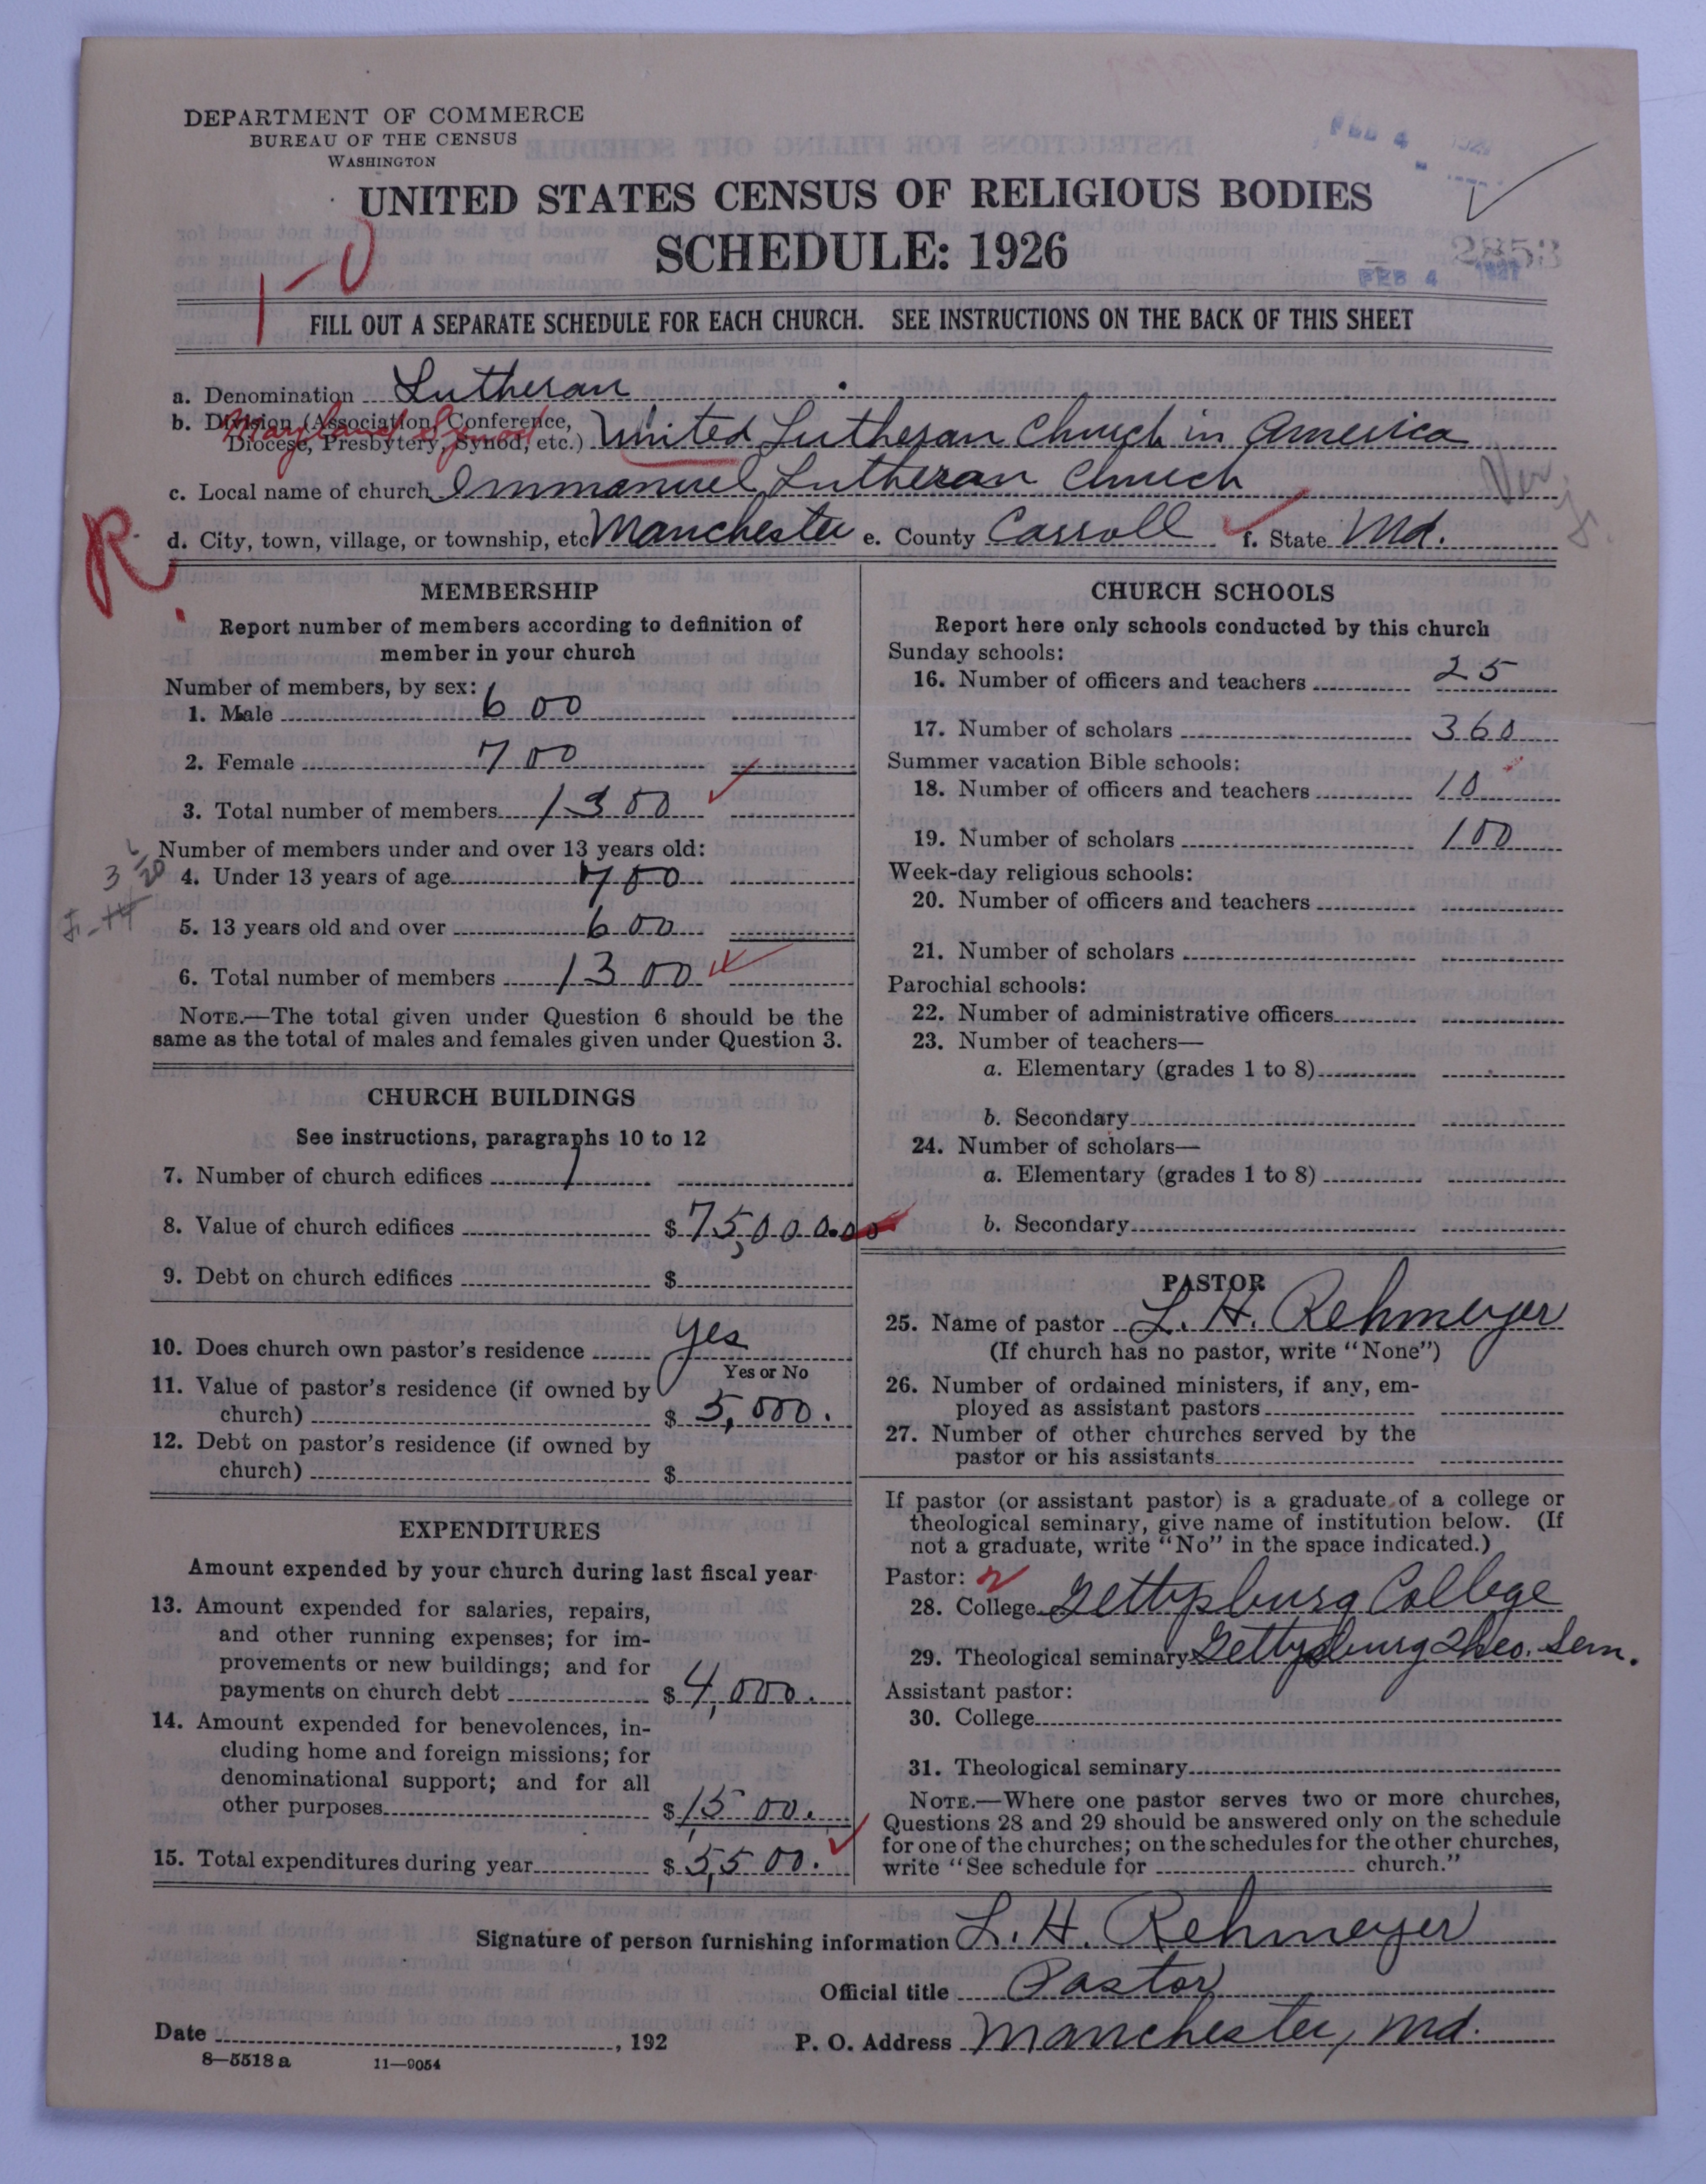 DEPARTMENT OF COMMERCE
BUREAU OF THE CENSUS
WASHINGTON
FEB 4
UNITED STATES CENSUS OF RELIGIOUS BODIES
SCHEDULE: 1926
1-0
2853
FEB 4 1927
FILL OUT A SEPARATE SCHEDULE FOR EACH CHURCH. SEE INSTRUCTIONS ON THE BACK OF THIS SHEET
a. Denomination Lutheran
b. Division (Association, Conference, Diocese, Presbytery, Synod, etc.) United Lutheran Church in America
Maryland Synod
c. Local name of church Immanuel Lutheran Church
R.
d. City, town, village, or township, etc Manchester e. County Carroll f. State Md.
MEMBERSHIP
Report number of members according to definition of
member in your church
Number of members, by sex:
1. Male 600
2. Female 700
3. Total number of members 1300
Number of members under and over 13 years old:
4. Under 13 years of age 700
5. 13 years old and over 600
6. Total number of members 1300
NOTE.—The total given under Question 6 should be the
same as the total of males and females given under Question 3.
CHURCH BUILDINGS
See instructions, paragraphs 10 to 12
7. Number of church edifices 1
8. Value of church edifices $75,000.00
9. Debt on church edifices $
10. Does church own pastor's residence Yes
Yes or No
11. Value of pastor's residence (if owned by
church) $5,000.
12. Debt on pastor's residence (if owned by
church) $
EXPENDITURES
Amount expended by your church during last fiscal year
13. Amount expended for salaries, repairs,
and other running expenses; for im-
provements or new buildings; and for
payments on church debt $4,000.
14. Amount expended for benevolences, in-
cluding home and foreign missions; for
denominational support; and for all
other purposes $1,500.
15. Total expenditures during year $5,500.
CHURCH SCHOOLS
Report here only schools conducted by this church
Sunday schools:
16. Number of officers and teachers 25
17. Number of scholars 360
Summer vacation Bible schools:
18. Number of officers and teachers 10
19. Number of scholars 100
Week-day religious schools:
20. Number of officers and teachers
21. Number of scholars
Parochial schools:
22. Number of administrative officers
23. Number of teachers—
a. Elementary (grades 1 to 8)
b. Secondary
24. Number of scholars—
a. Elementary (grades 1 to 8)
b. Secondary
PASTOR
25. Name of pastor L. H. Rehmeyer
(If church has no pastor, write "None")
26. Number of ordained ministers, if any, em-
ployed as assistant pastors
27. Number of other churches served by the
pastor or his assistants
If pastor (or assistant pastor) is a graduate of a college or
theological seminary, give name of institution below. (If
not a graduate, write "No" in the space indicated.)
Pastor:
28. College Gettysburg College
29. Theological seminary Gettysburg Theo. Sem.
Assistant pastor:
30. College
31. Theological seminary
NOTE.—Where one pastor serves two or more churches,
Questions 28 and 29 should be answered only on the schedule
for one of the churches; on the schedules for the other churches,
write "See schedule for church."
Signature of person furnishing information L. H. Rehmeyer
Official title Pastor
Date , 192
P. O. Address Manchester, Md.
8—5518 a 11—9054